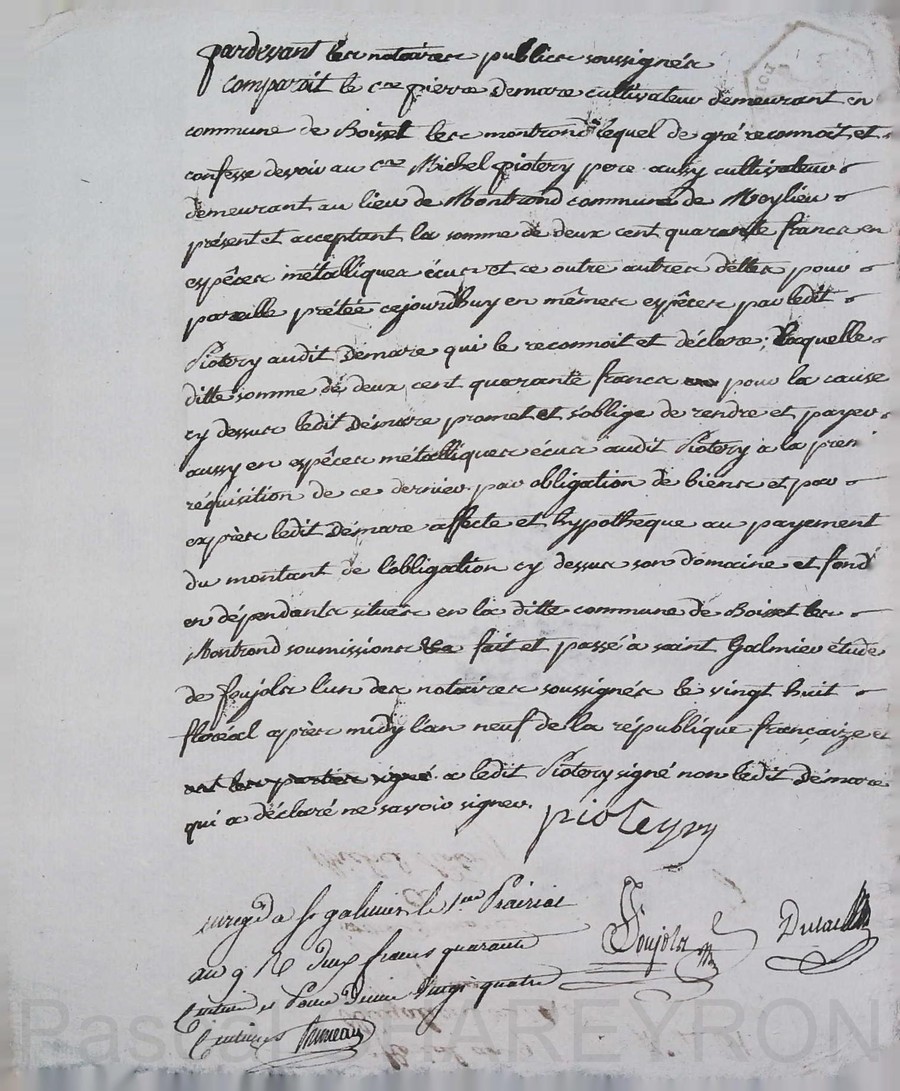 pardevant les notaires publics soussignés
comparait le cen pierre Demare cultivateur demeurant en
commune de Boisset les montrond lequel de gré reconnoit et
confesse devoir au cen Michel piotery pere aussy cultivateur
demeurant au lieu de Montrond commune de Meylieu
présent et acceptant la somme de deux cent quarante francs en
espêces métalliques écus et ce outre autres dettes pour
pareille prétée cejourdhuy en mêmes espêces par ledit
Piotery audit Demare qui le reconnoit et déclare; laquelle
ditte somme de deux cent quarante francs pour la cause
cy dessus ledit Démare promet et s'oblige de rendre et payer
aussy en espêces métalliques écus audit Piotery a la prem
réquisition de ce dernier par obligation de biens et par
exprès ledit Démare affecte et hypotheque au payement
du montant de l'obligation cy dessus son domaine et fond
en dépendants situés en la ditte commune de Boisset les
Montrond soumissions fait et passé à saint Galmier étude
de foujols l'un des notaires soussignés le vingt huit
floréal après midy l'an neuf de la république françaize et
ont les parties signé a ledit Piotery signé non ledit Démare
qui a déclaré ne savoir signer. pioteyry
enregd a St galmier le 1er Prairial
au 9 R deux francs quarante
Centimes Pour Dixme Vingt quatre
Centimes
Foujols
Pascal CHAREYRON